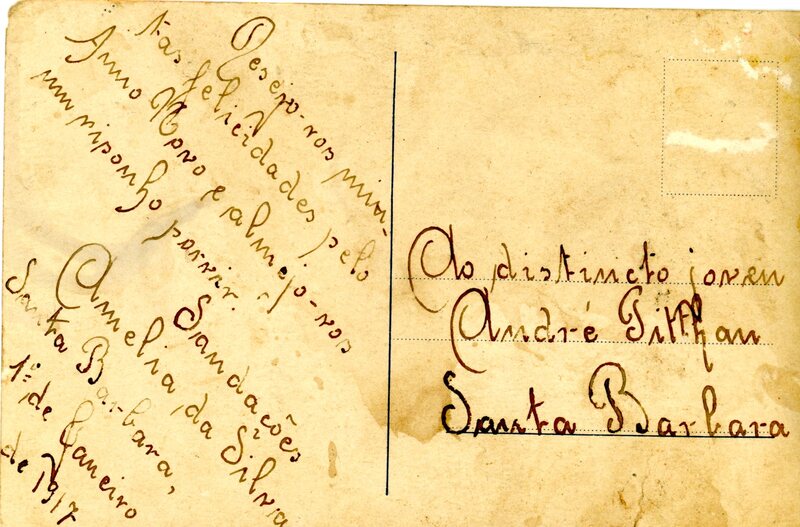 Desejo-vos mui-
tas felicidades pelo
Anno Novo e almejo-vos
um risonho porvir.
Saudações
Amelia da Silva
Santa Barbara,
1º de Janeiro
de 1917
Ao distincto joven
André Pitthan
Santa Barbara